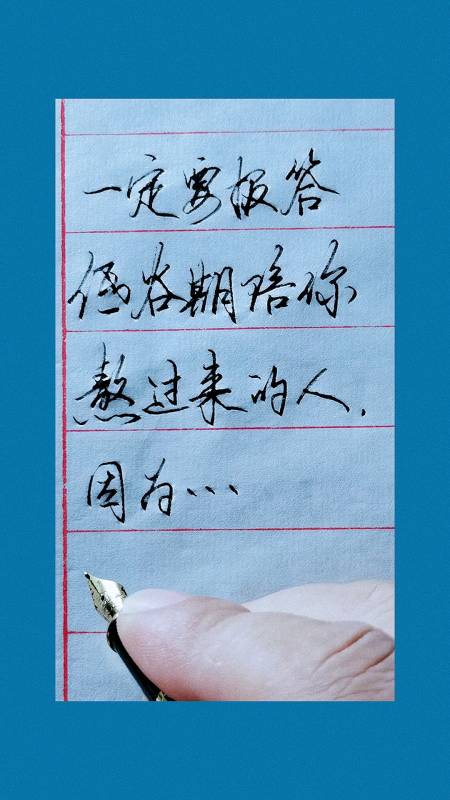 一定要报答
低谷期陪你
熬过来的人.
因为…